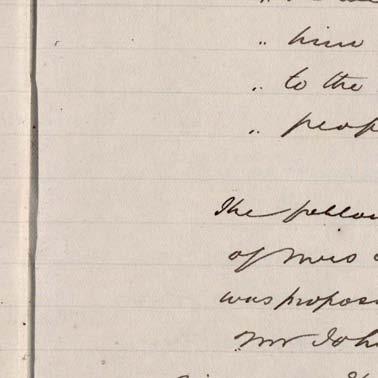 " him
" to the
" peop
The follow
of Miss
was propos
Mr Joh